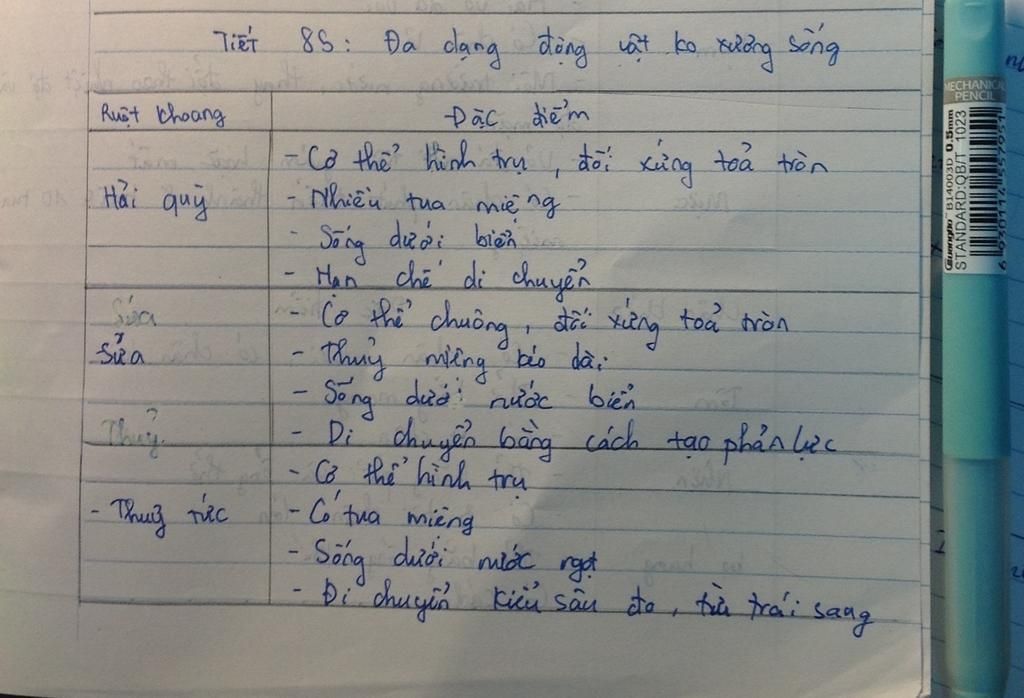 Tiết 85: Đa dạng động vật ko xương sống
Ruột khoang
Đặc điểm
- Cơ thể hình trụ, đối xứng toả tròn
Hải quỳ
- Nhiều tua miệng
- Sống dưới biển
- Hạn chế di chuyển
Sứa
- Cơ thể chuông, đối xứng toả tròn
Sứa
- Thuỳ miệng kéo dài
- Sống dưới nước biển
Thuỷ
- Di chuyển bằng cách tạo phản lực
- Cơ thể hình trụ
- Thuỷ tức
- Có tua miệng
- Sống dưới nước ngọt
- Di chuyển kiểu sâu đo, từ trái sang
MECHANICAL
PENCIL
Guangbo B14003D 0.5mm
STANDARD:QB/T 1023